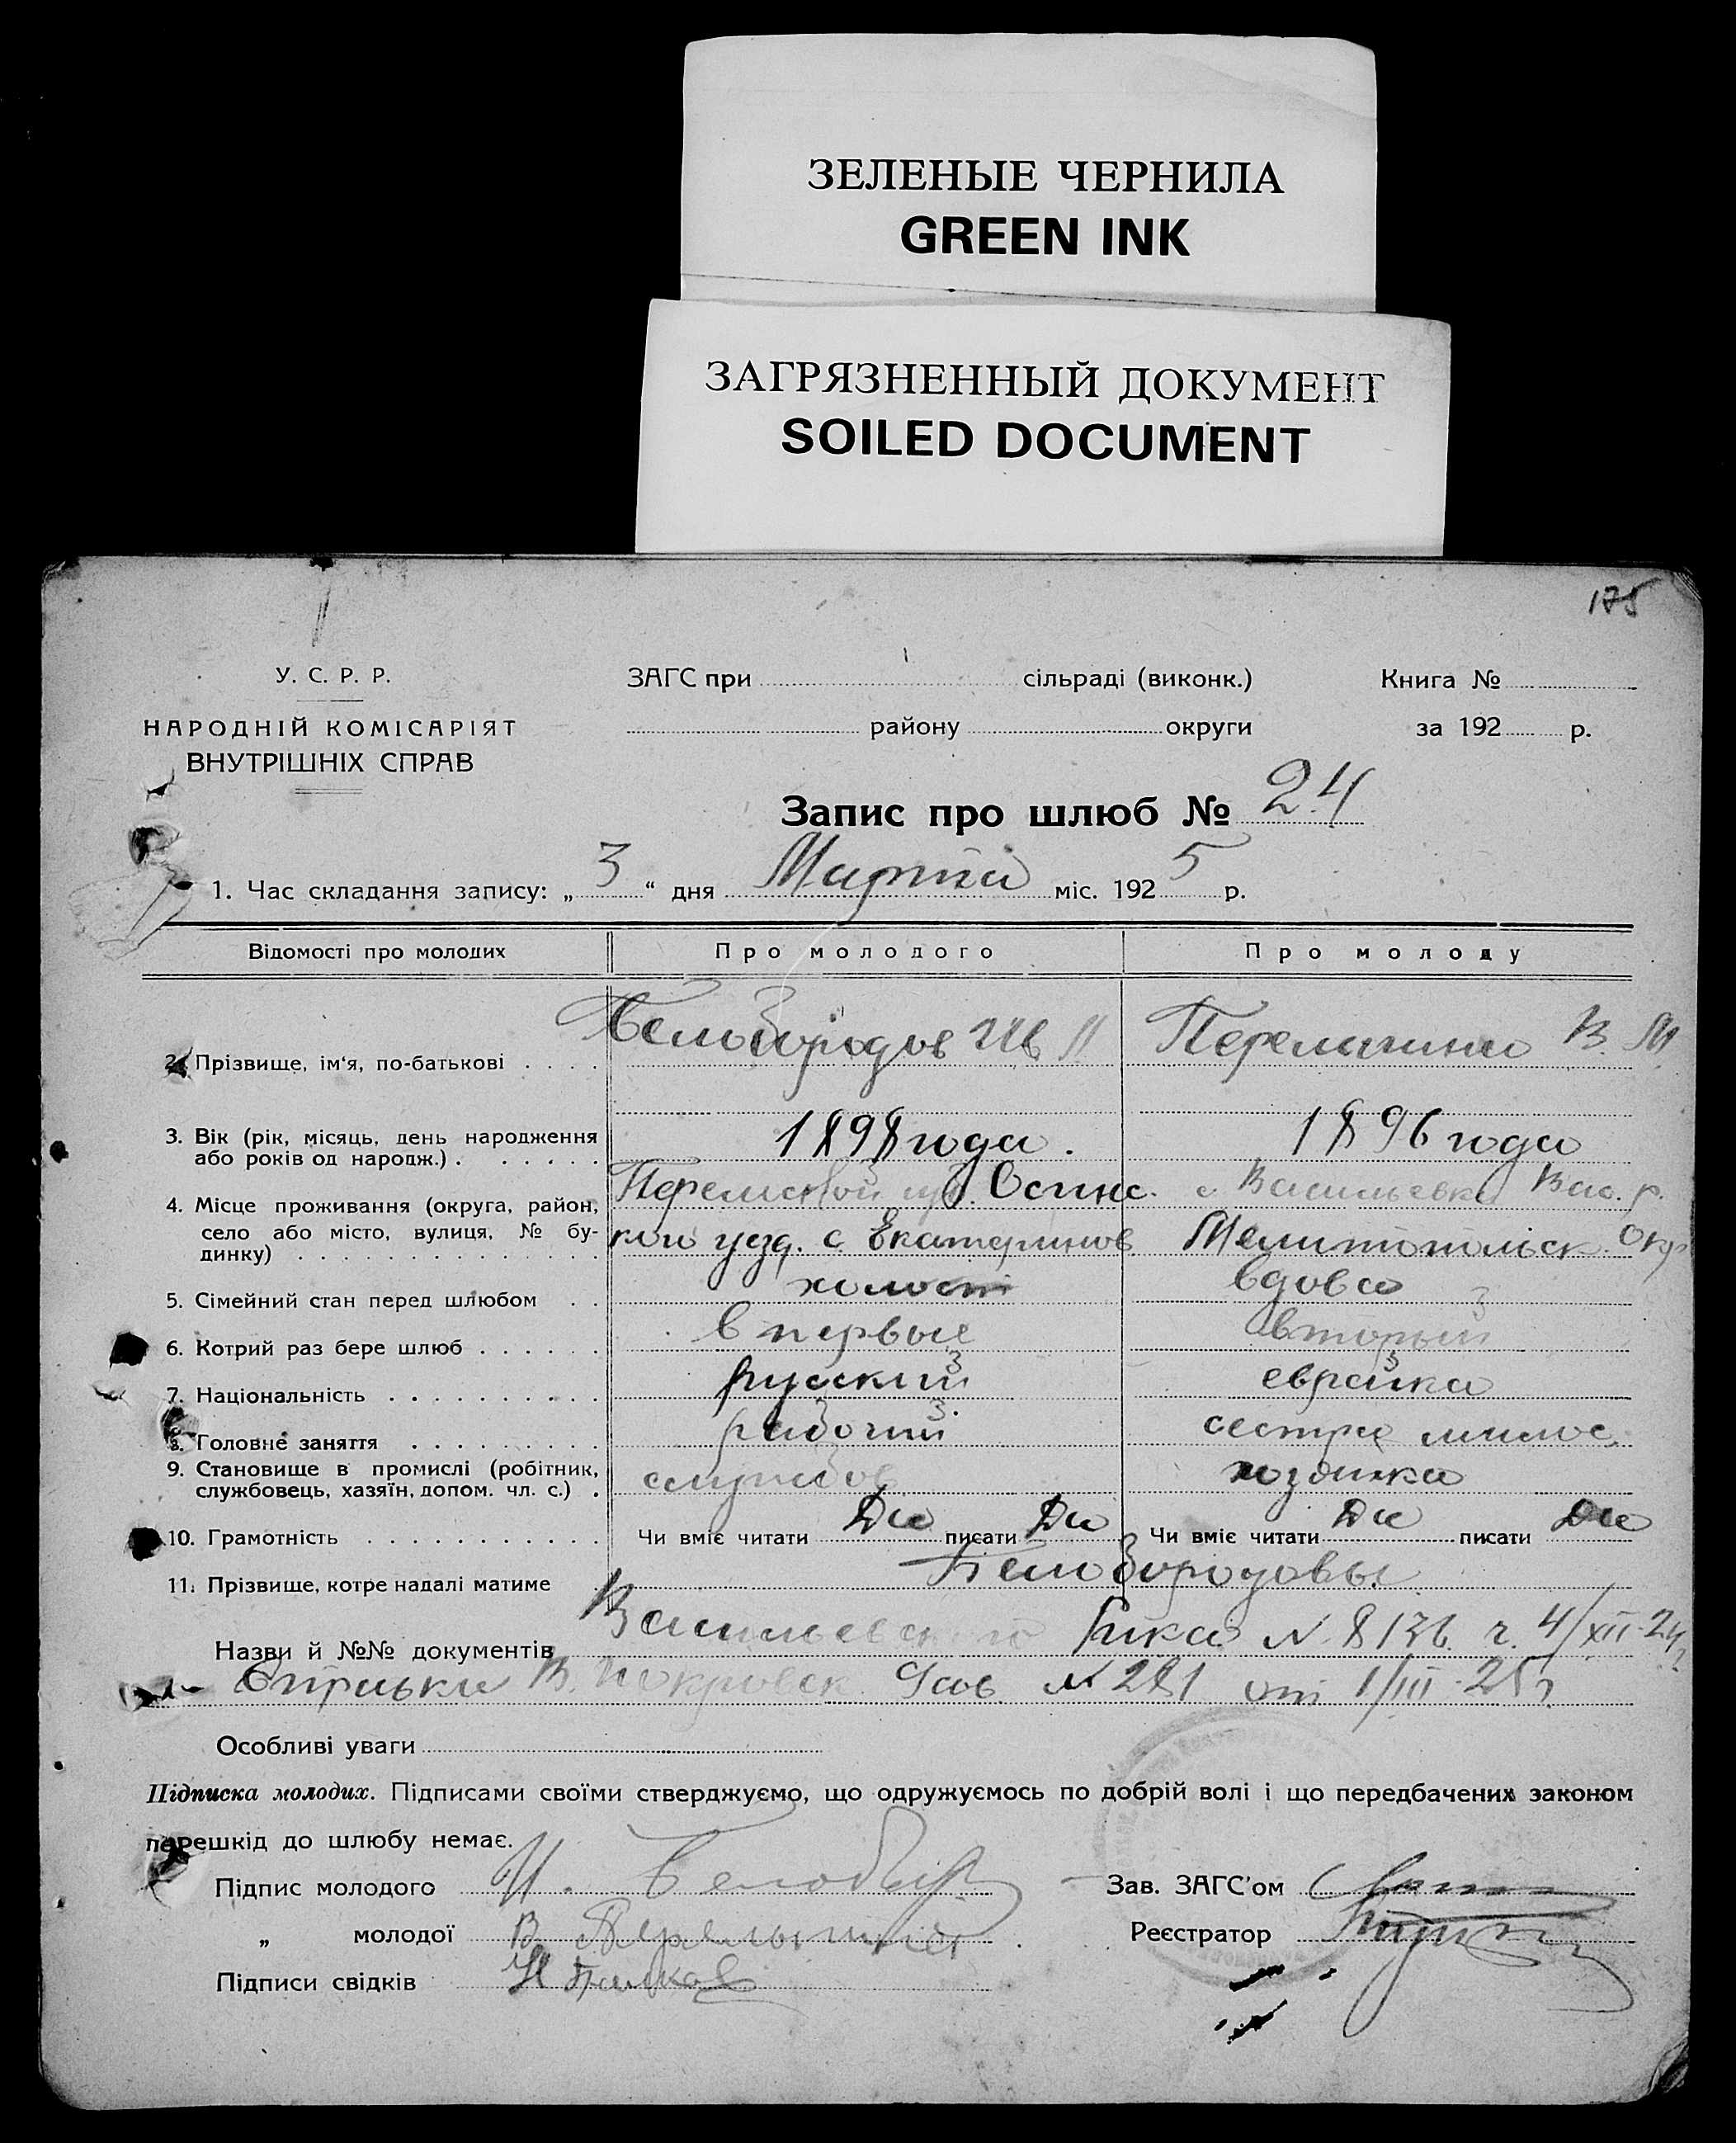 ЗЕЛЕНЫЕ ЧЕРНИЛА
GREEN INK
ЗАГРЯЗНЕННЫЙ ДОКУМЕНТ
SOILED DOCUMENT
175
У. С. Р. Р.
НАРОДНІЙ КОМІСАРІЯТ
ВНУТРІШНІХ СПРАВ
ЗАГС при сільраді (виконк.)
району округи
Книга №
за 192 р.
Запис про шлюб № 24
1. Час складання запису: „ 3 “ дня Марта міс. 192 5 р.
Відомості про молодих Про молодого Про молоду
2. Прізвище, ім'я, по-батькові Белобородов Ив Перельмин В. М
3. Вік (рік, місяць, день народження 1898 года. 1896 года
або років од народж.)
4. Місце проживання (округа, район, Пермской губ. Осинс- с. Васильевка Вас. р.
село або місто, вулиця, № бу- кого уезд. с. Екатеринов Мелитопольск. Окр
динку)
5. Сімейний стан перед шлюбом холост вдова
6. Котрий раз бере шлюб впервые вторый
7. Національність русский еврейка
8. Головне заняття рабочий сестра милос
9. Становище в промислі (робітник, службов
службовець, хазяїн, допом. чл. с.)
10. Грамотність Чи вміє читати Да писати Да Чи вміє читати Да писати Да
11. Прізвище, котре надалі матиме Белобородовы
Назви й №№ документів Васильевского Рика № 8136 4/XII-24
В. Покровск № 281 от 1/III-25 г.
Особливі уваги
Підписка молодих. Підписами своїми стверджуємо, що одружуємось по добрій волі і що передбачених законом
перешкід до шлюбу немає.
Підпис молодого И. Белобор
„ молодої В.
Підписи свідків
Зав. ЗАГС'ом
Реєстратор